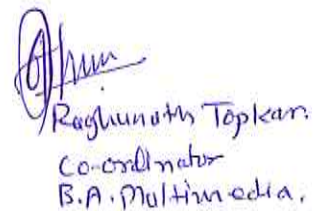 Raghunath Topkar.
Co-ordinator
B.A. Multimedia.